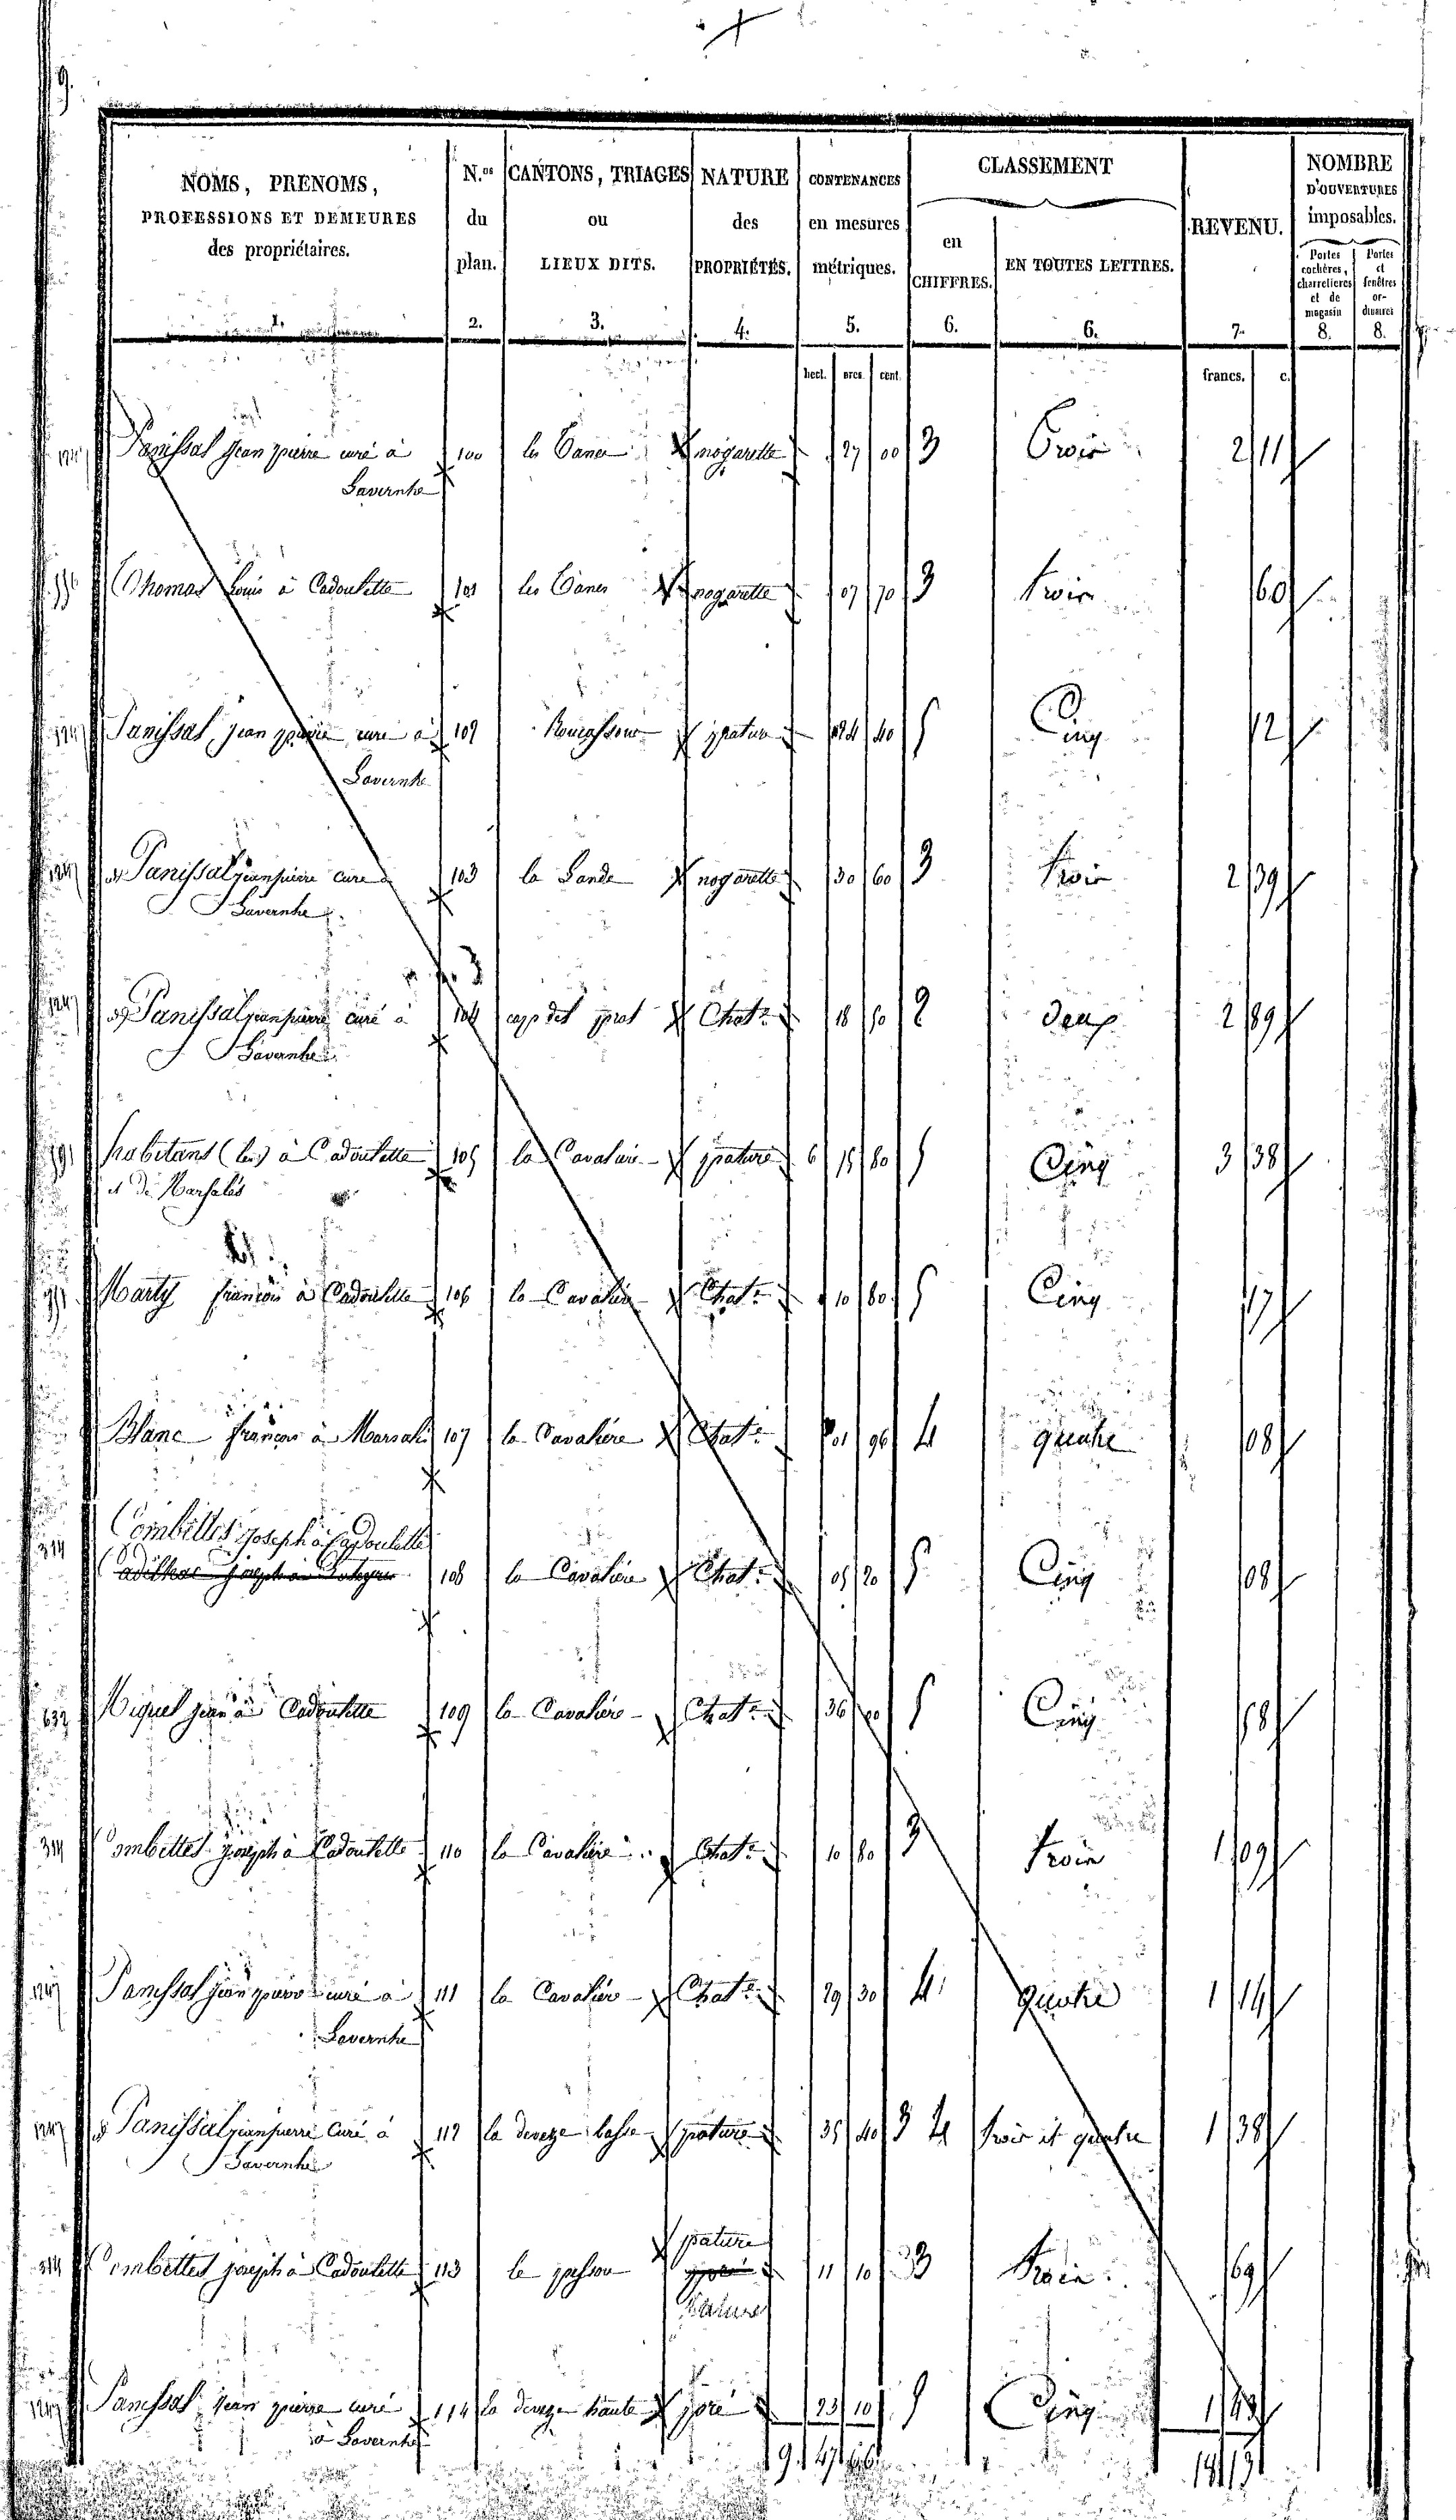 9.
NOMS, PRENOMS, PROFESSIONS ET DEMEURES des propriétaires. 1.
N.os du plan. 2.
CANTONS, TRIAGES ou LIEUX DITS. 3.
NATURE des PROPRIÉTÉS. 4.
CONTENANCES en mesures métriques. 5.
CLASSEMENT
en CHIFFRES. 6.
EN TOUTES LETTRES. 6.
REVENU. 7.
NOMBRE D'OUVERTURES imposables.
Portes cochères, charretieres et de magasin 8.
Portes et fenêtres ordinaires 8.
hect. ares cent. francs. c.
Panissal jean pierre curé à 100 les nogarette 27 00 3 Trois 2 11
Lavernhe
Thomas Louis à Cadoulette 101 les nogarette 07 70 3 trois 60
Panissal jean pierre curé à 102 pature 40 5 Cinq 12
Lavernhe
Panissal jean pierre curé à 103 la Lande nogarette 30 60 3 trois 2 39
Lavernhe
Panissal jean pierre curé à 104 cap del prat Chat.re 18 50 2 deux 2 89
Lavernhe
habitans (les) à Cadoulette 105 la Cavalière pature 6 15 80 5 Cinq 3 38
et de Marsalès
Marty françois à Cadoulette 106 la Cavalière Chat.re 10 80 5 Cinq 17
Blanc françois à Marsalès 107 la Cavalière Chat.re 01 96 4 quatre 08
Combettes joseph à Cadoulette
108 la Cavalière Chat.re 05 20 5 Cinq 08
637 Miquel jean à Cadoulette 109 la Cavalière Chat.re 36 5 Cinq 58
314 Combettes joseph à Cadoulette 110 la Cavalière Chat.re 10 80 3 trois 1 09
Panissal jean pierre curé à 111 la Cavalière Chat.re 29 30 4 quatre 1 14
Lavernhe
Panissal jean pierre curé à 112 la deveze basse pature 35 40 3 4 trois et quatre 1 38
Lavernhe
pature
314 Combettes joseph à Cadoulette 113 le 11 10 3 trois 69
pature
Panissal jean pierre curé 114 la deveze haute pré 23 10 5 Cinq 1
à Lavernhe
9 47 66